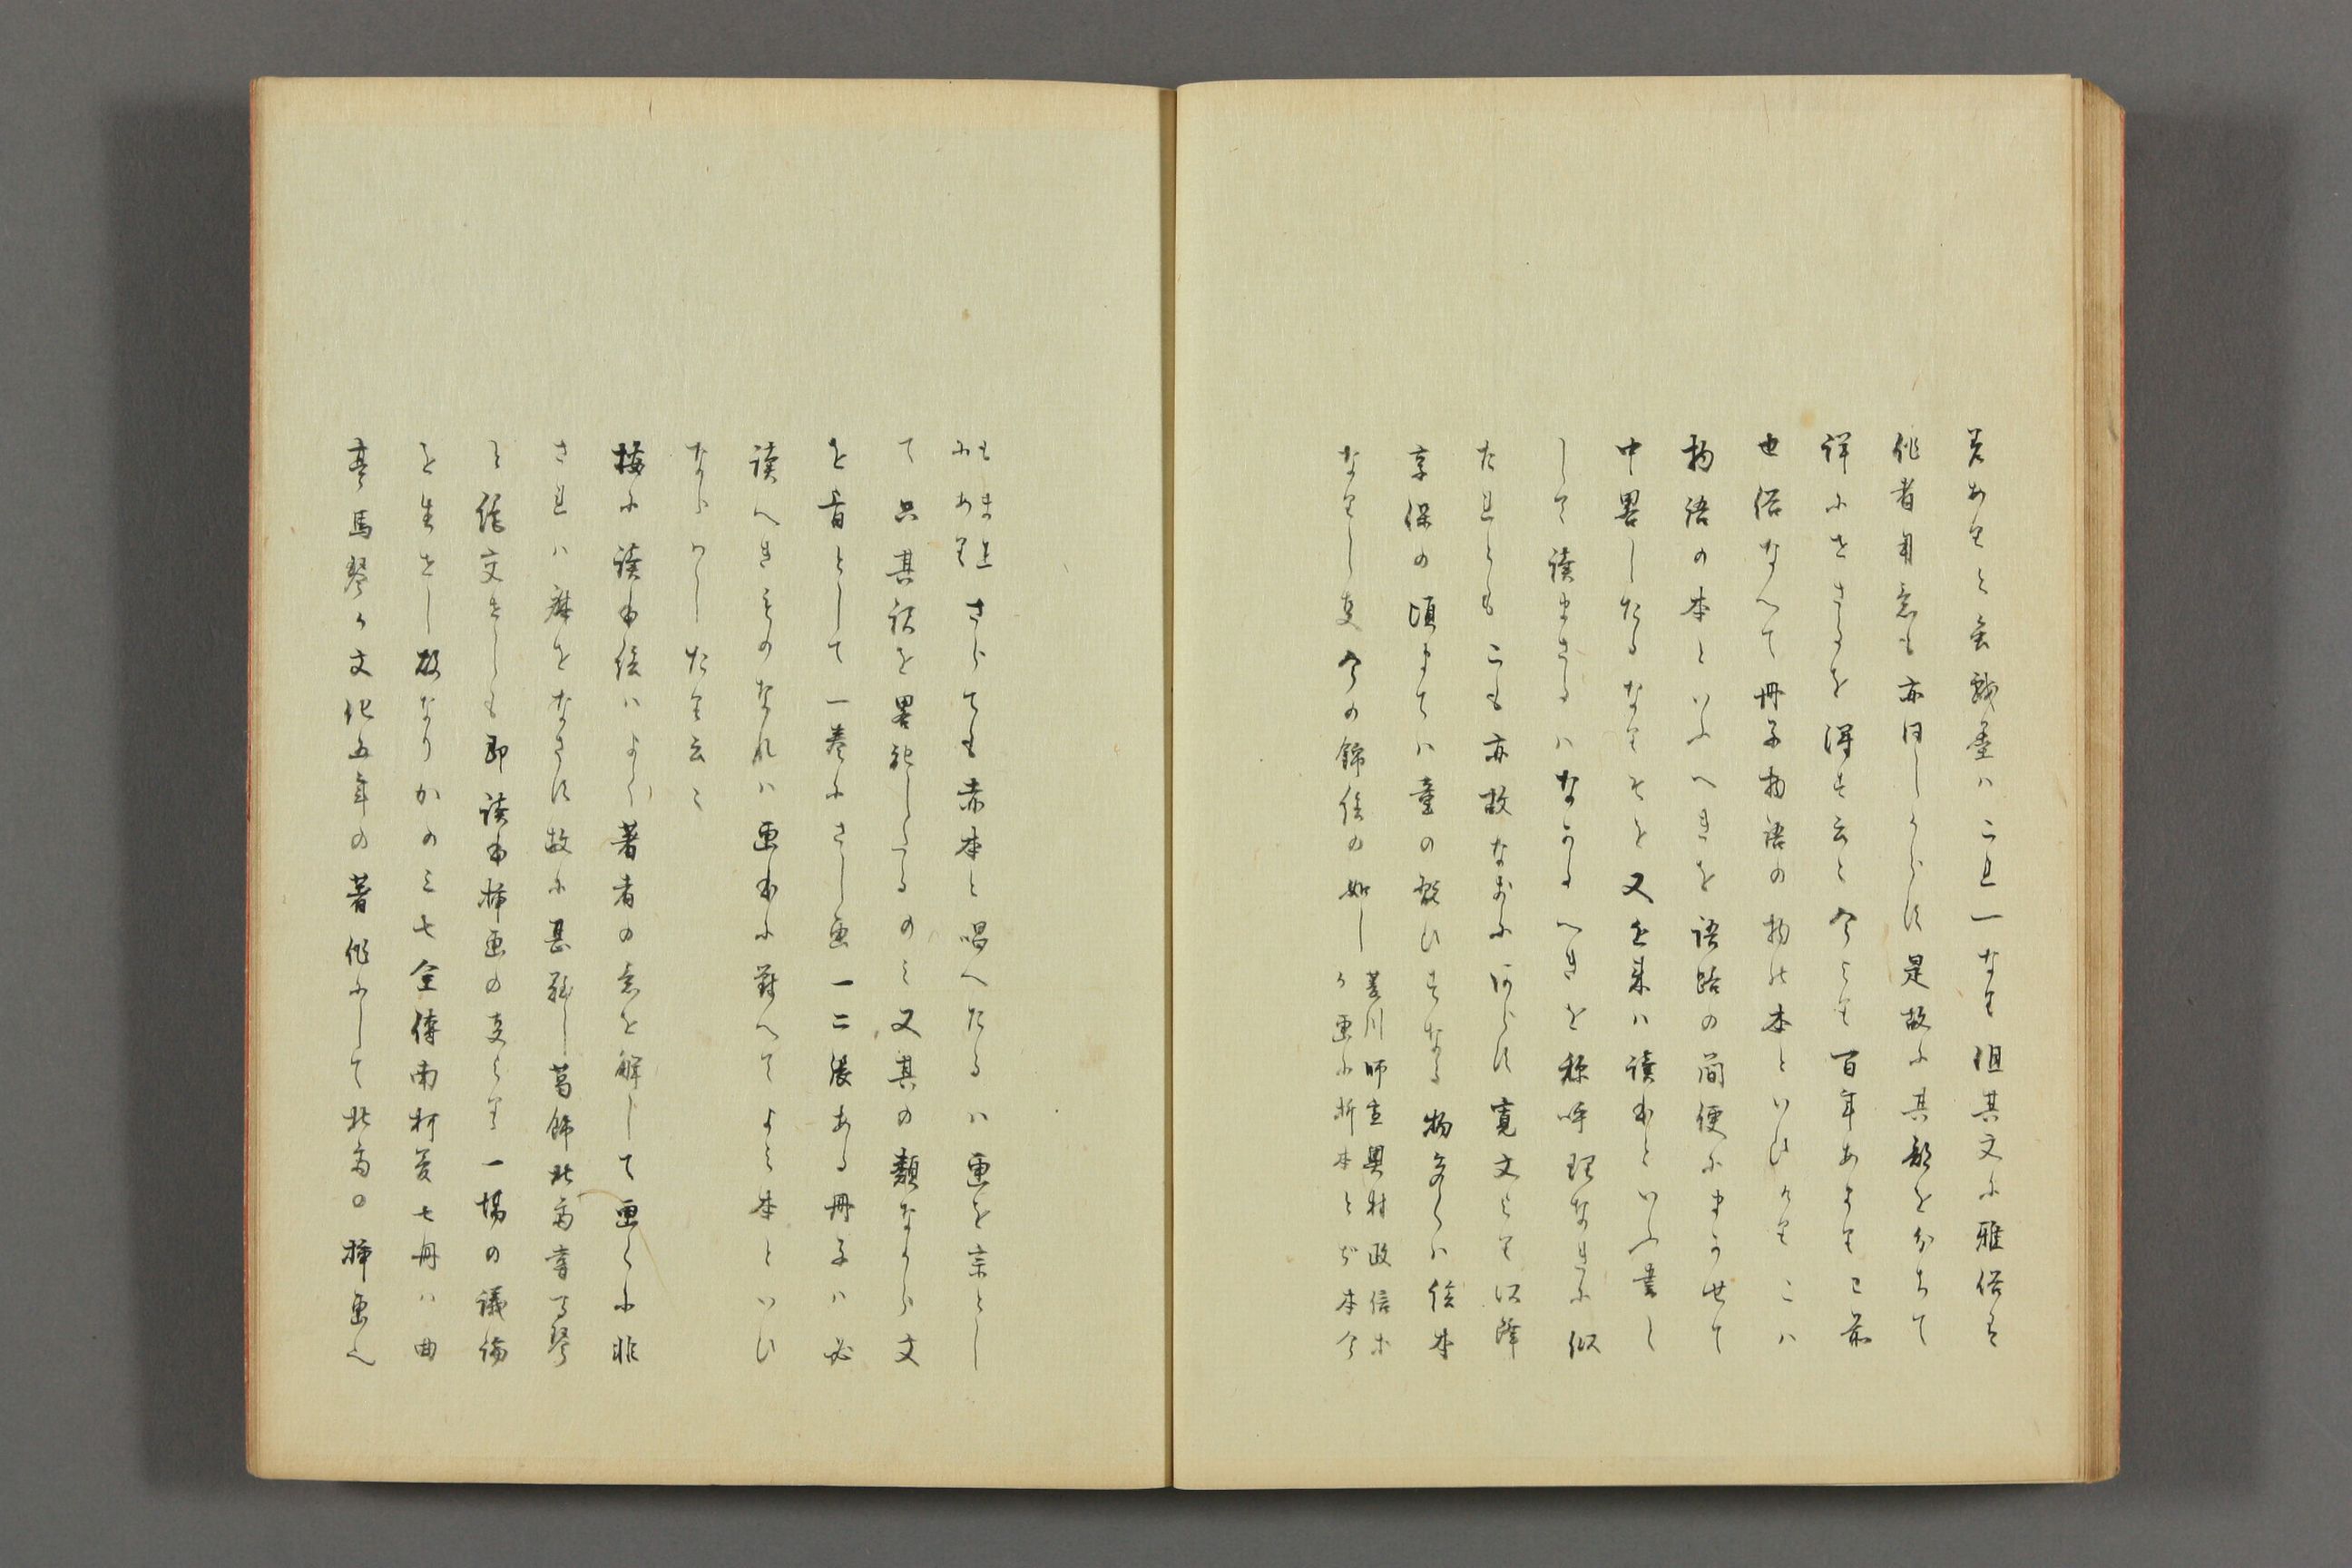 差あり と 金 戯墨ハ二且一なり 但其文に雅俗を
作者用意も亦同しからす是故に其部を分ちて
詳にせさるを得す云と今より百年あまり已前
也俗なへて冊子物語の物の本といひけりこハ
物語の本といふへきを語路の簡便にまかせて
中畧したるなりそを又近来ハ読本といふ書と
して読まさるハなかるへきを称呼理なきに似
たれとも二も亦故なきにあらす寛文より以降
享保の頃まてハ童の翫ひすなる物多くハ絵本
なりし事今の錦絵の如し
菱川師宣奥村政信等
か画に折本とぢ本今
も
にあり
さらても赤本と唱へたるハ画を宗とし
て只其訳を畧記したるのミ又其の類なから文
を旨として一巻にさし画一二張ある冊子ハ必
読へきものなれハ画本に対へてよミ本といひ
ならハしたり云々
按に読本絵ハよく著者の意を解して画くに非
されハ麻をなさす故に甚難し葛飾北斎嘗て馬琴
と絶交せしも即読本挿画の事より一場の議論
を生せし故なりかの三七全伝南柯夢七冊ハ曲
亭馬琴か文化五年の著作にして北斎の挿画也